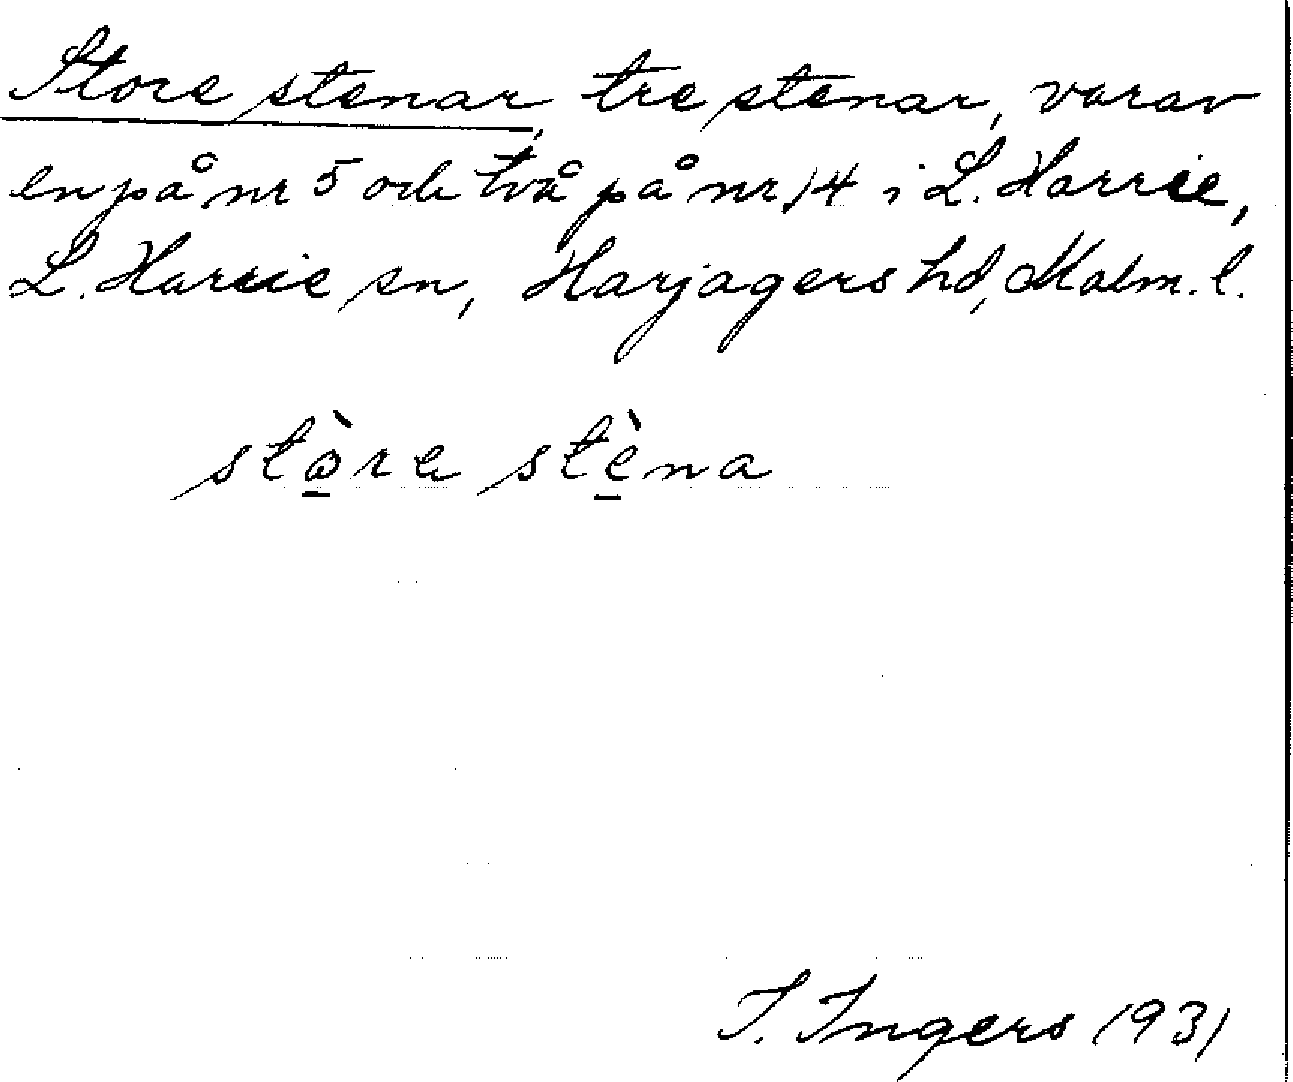 Store stenar, tre stenar, varav
en på nr 5 och två på nr 14 i L. Harrie,
L. Harrie sn, Harjagers hd, Malm. l.
stò̠re stè̠na
I. Ingers 1931